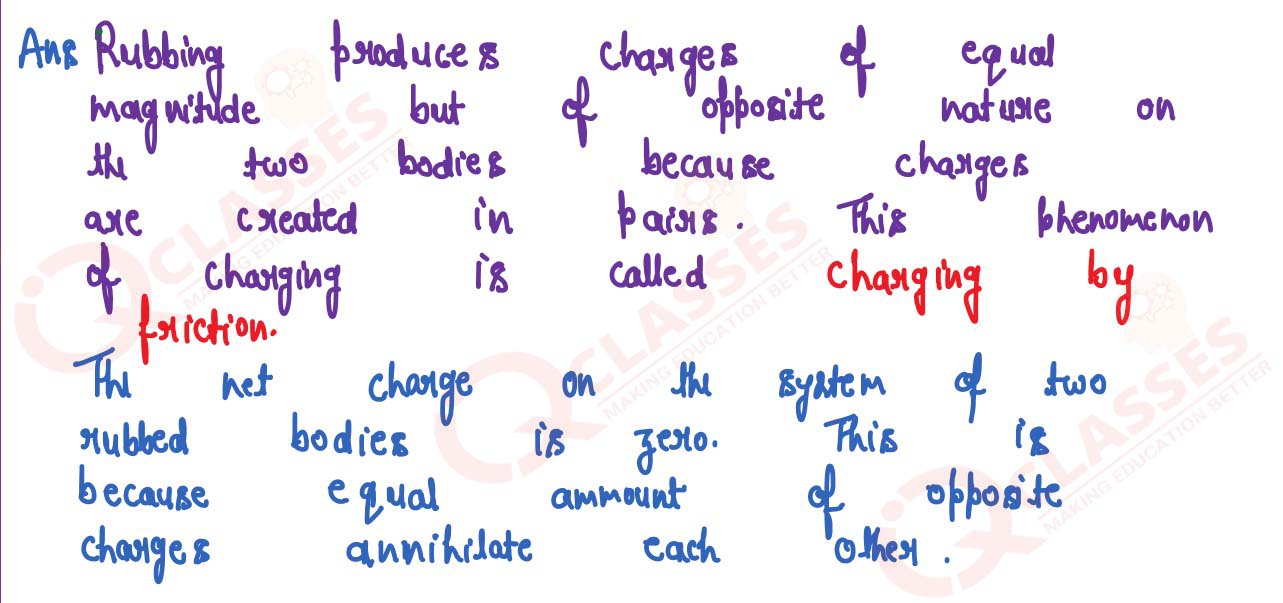 Ans Rubbing produces charges of equal
magnitude but of opposite nature on
the two bodies because charges
are created in pairs. This phenomenon
of charging is called charging by
friction.
The net charge on the system of two
rubbed bodies is zero. This is
because equal ammount of opposite
charges annihilate each other.
CLASSES
MAKING EDUCATION BETTER
CLASSES
MAKING EDUCATION BETTER
CLASSES
MAKING EDUCATION BETTER